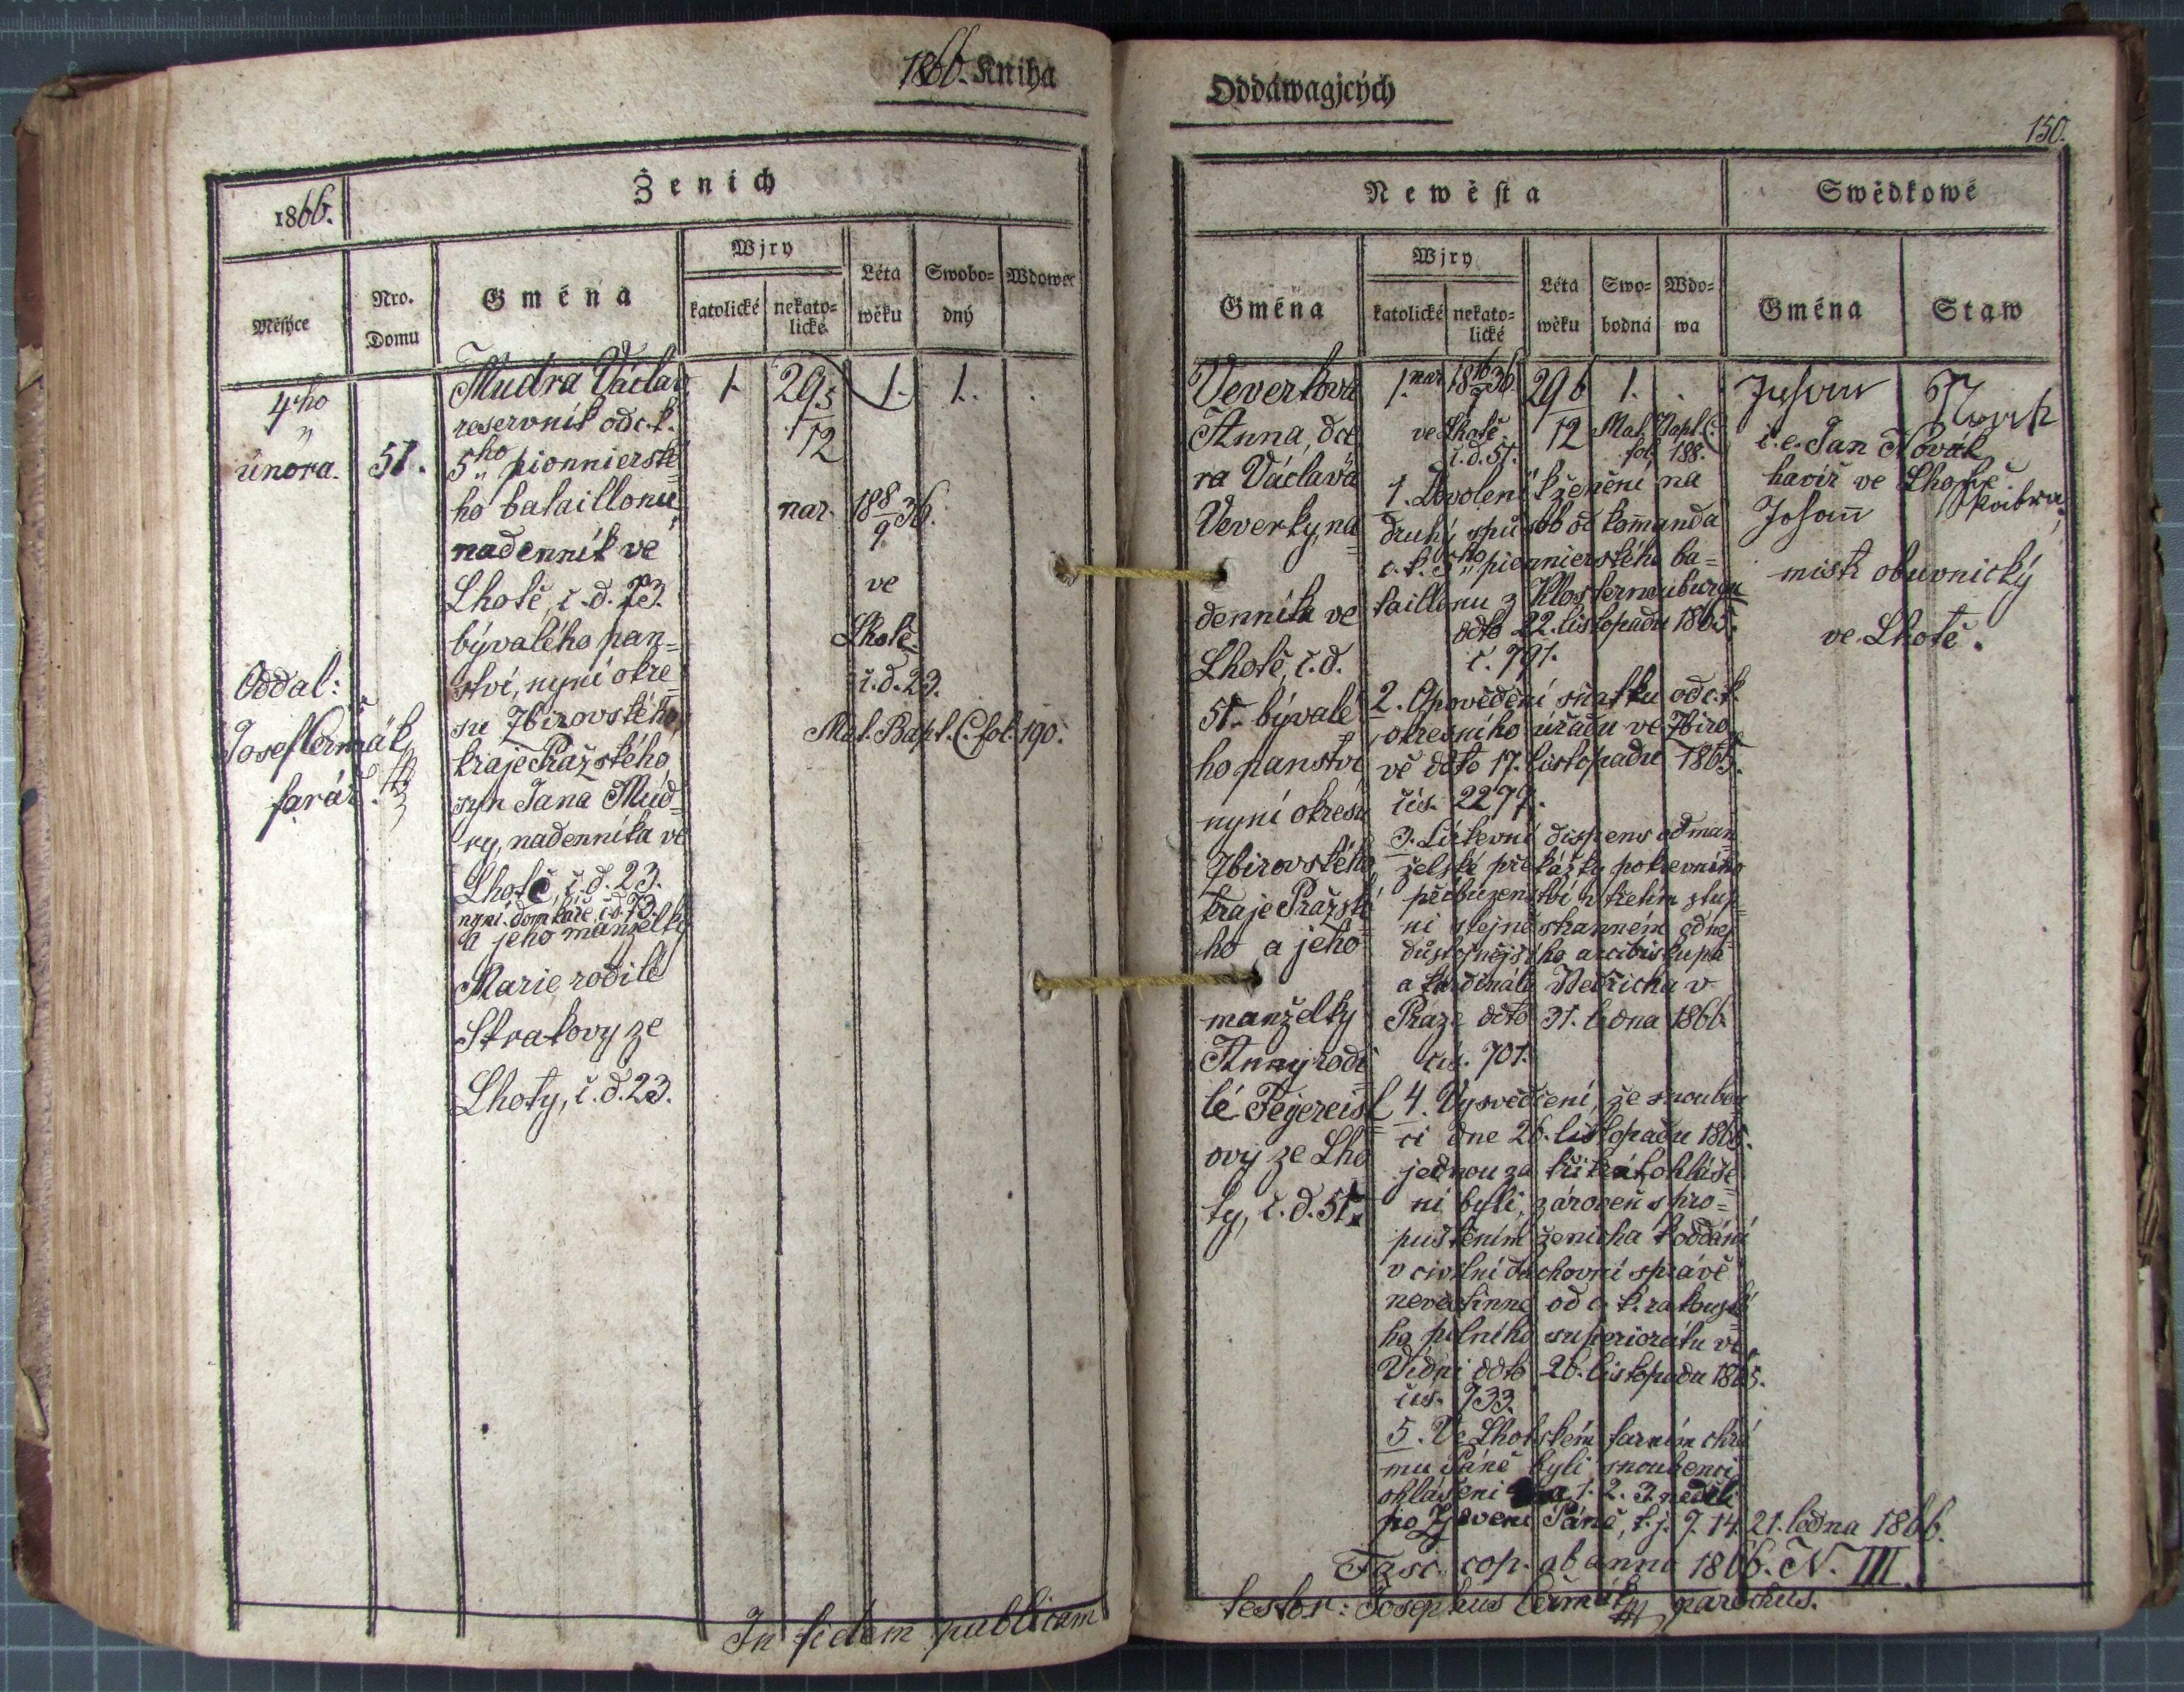 1866. Kniha
Ženich
1866.
Wjry
Měsýce
Nro. Domu
Gména
katolické
nekato=
lické
Léta
wěku
Swobo=
dný
Wdowec
4ho
února.
51.
Mudra Václav
reservník od c. k.
5ho pionnierské
ho bataillonu
nadenník ve
Lhotě, č. d. 73.
bývalého pan=
ství, nyní okre=
su Zbirovského,
kraje Pražského
syn Jana Múd=
ry, nadenníka ve
Lhotě, č. d. 23.
nyní domkáře č. d. 73.
a jeho manželky
Marie rodilé
Strakovy ze
Lhoty, č. d. 23.
1.
29 5/12
1.
1.
nar. 18 8/9 36.
ve
Lhotě
č. d. 23.
Mat. Bapt. C. fol. 190.
Oddal:
Josef Čermák
farář.
In fidem publicam
Oddáwagjcých
150.
Newěsta
Swědkowé
Gména
Wjry
katolické
nekato=
lické
Léta
wěku
Swo=
bodná
Wdo=
wa
Gména
Staw
Veverková
Anna, dce
ra Václava
Veverky, na=
denníka ve
Lhotě, č. d.
51. bývalé
ho panství
nyní okresu
Zbirovského,
kraje Pražské
ho a jeho
manželky
Anny rodi
lé Fegereisl
ovy ze Lho
ty, č. d. 51.
1. nar. 18 16/7 36
29 6/12
1.
ve Lhotě
č. d. 51.
Mat. Bapt. C.
fol. 188.
1. Dovolení k ženění na
druhý spůsob od kommanda
c. k. 5ho pionnierského ba=
taillonu z Klosterneuburgu
ddto 22. listopadu 1865.
č. 791.
2. Opovědění sňatku od c. k.
okresního úřadu ve Zbiro
vě ddto 17. listopadu 1865.
čís. 2277.
3. Církevní dispens od man
želské překážky pokrevního
příbuzenství v třetím stup=
ni stejnostranném od nej
důstojnějšího arcibiskupa
a kardinála Bedřicha v
Praze ddto 31. ledna 1866.
čís. 701.
4. Vysvědčení, že snouben
ci dne 26. listopadu 1865.
jednou za třikrát ohláše
ni byli, zároveň s pro=
puštěním ženicha k oddání
v civilní duchovní správě
nevěstinné od c. k. rakouské
ho polního superiorátu ve
Vídni ddto 26. listopadu 1865.
čís. 733.
5. Ve Lhotském farním chrá
mu Páně byli snoubenci
ohlášeni na 1. 2. 3. neděli
po Zjevení Páně, t. j. 7. 14. 21. ledna 1866.
Fasc. cop. ab anno 1866. N. III.
testor: Josephus Čermák parochus.
Johann Novak
i. e. Jan Novák
havíř ve Lhotě.
Johann
mistr obuvnický
ve Lhotě.